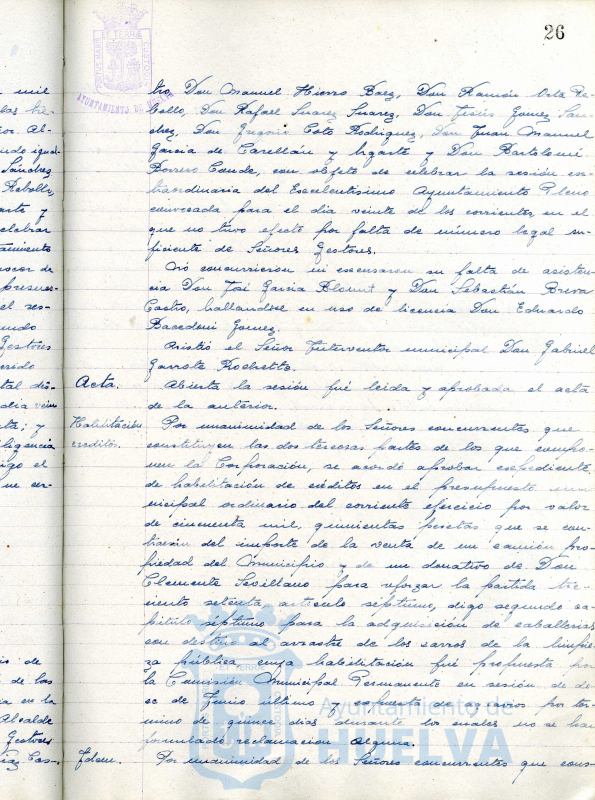 26
AYUNTAMIENTO DE HUELVA
tro, Don Manuel Hierro Baez, Don Ramón Vela Re-
bollo, Don Rafael Suarez Suarez, Don Jesús Gomez San-
chez, Don Gregorio Coto Rodriguez, Don Juan Manuel
Garcia de Carellán y Ugarte y Don Bartolomé
Borrero Conde, con objeto de celebrar la sesión ex-
traordinaria del Excelentísimo Ayuntamiento Pleno
convocada para el dia veinte de los corrientes, en el
que no tuvo efecto por falta de número legal su-
ficiente de Señores Gestores.
No concurrieron ni excusaron su falta de asisten-
cia Don José Garcia Blount y Don Sebastián Breva
Castro, hallandose en uso de licencia Don Eduardo
Bacedoni Gomez.
Asistió el Señor Interventor municipal Don Gabriel
Garrote Rochette.
Acta. Abierta la sesión fué leida y aprobada el acta
de la anterior.
Habilitación Por unanimidad de los Señores concurrentes que
creditos. constituyen las dos terceras partes de los que compo-
nen la Corporación, se acordó aprobar expediente
de habilitación de créditos en el presupuesto mu-
nicipal ordinario del corriente ejercicio por valor
de cincuenta mil, quinientas pesetas que se con-
traerán del importe de la venta de un camión pro-
piedad del Municipio y de un donativo de Don
Clemente Sevillano para reforzar la partida tres-
ciento setenta, artículo séptimo, digo segundo ca-
pitulo séptimo para la adquisición de caballerias
con destino al arrastre de los carros de la limpie-
za pública cuya habilitación fué propuesta por
la Comisión Municipal Permanente en sesión de do-
ce de Junio último y expuesta de agravios por ter-
mino de quince dias durante los cuales no se han
formulado reclamación alguna.
Idem. Por unanimidad de los Señores concurrentes que cons-
Ayuntamiento de
HUELVA